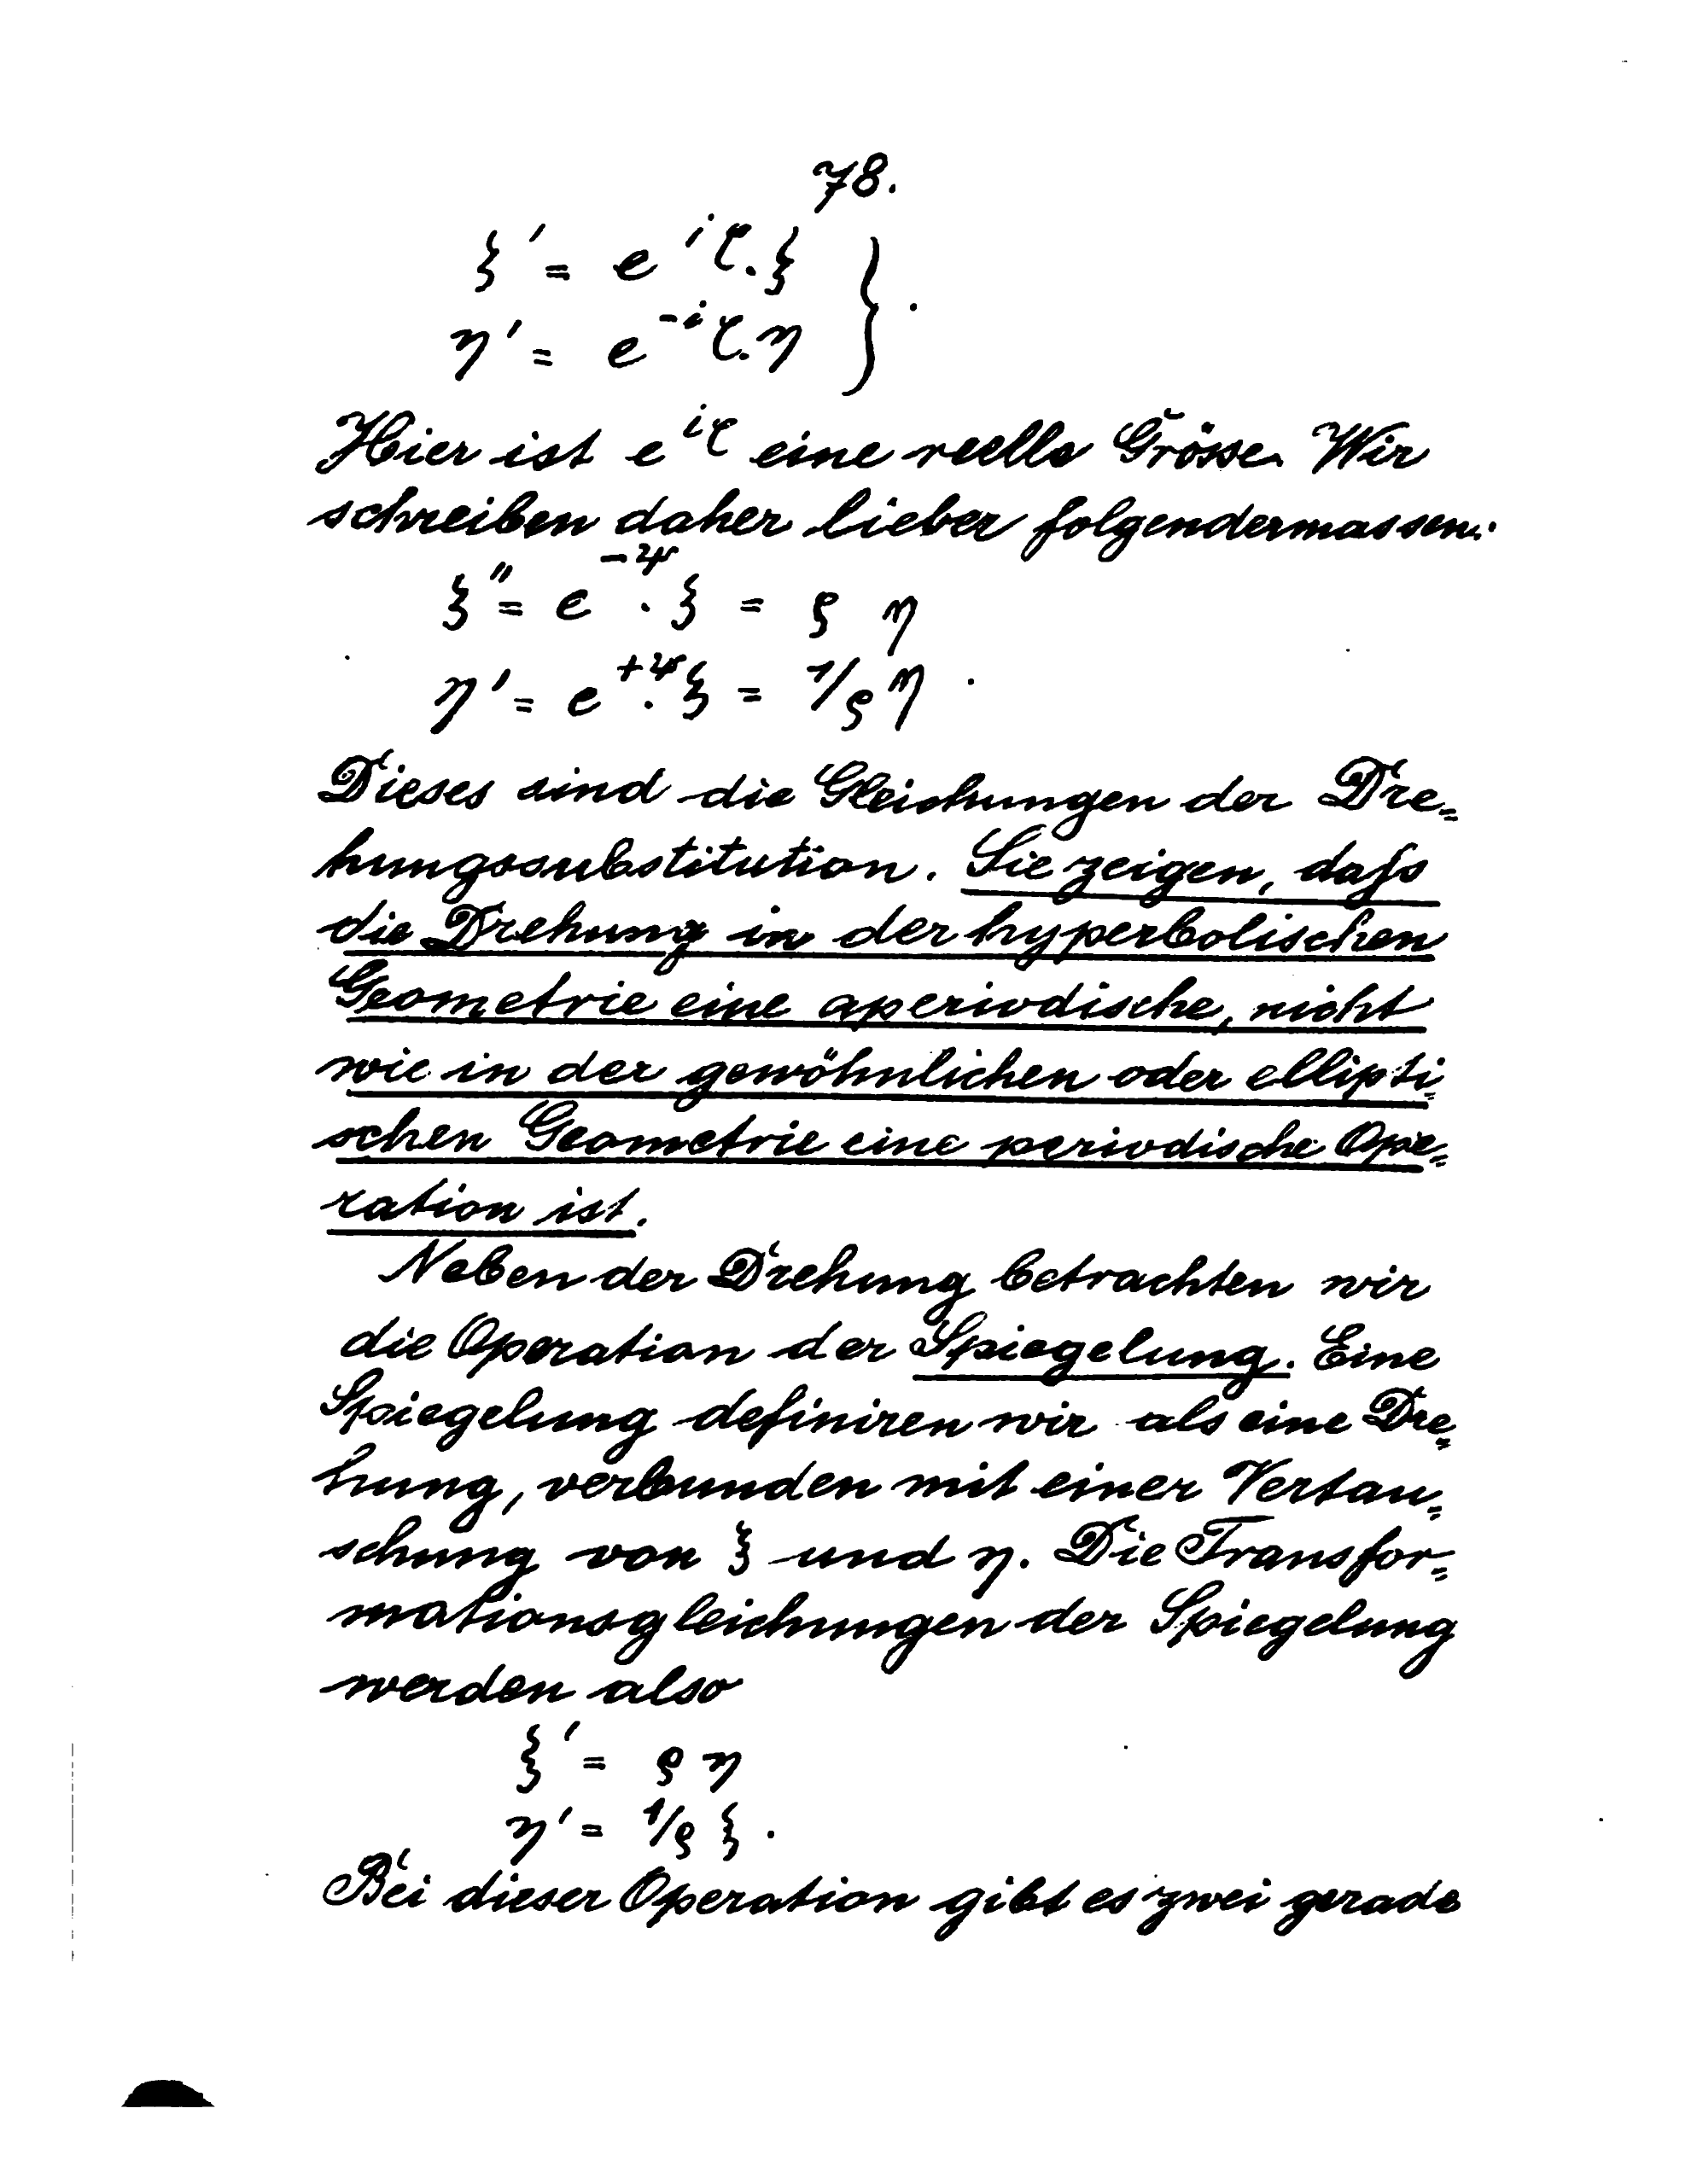 78.
ξ' = e^{iτ}.ξ }
η' = e^{-iτ}.η } .
Hier ist e^{iτ} eine reelle Grösse. Wir
schreiben daher lieber folgendermassen:
ξ'' = e^{-ψ} . ξ = ρ η
η' = e^{+ψ} . ξ = 1/ρ η .
Dieses sind die Gleichungen der Dre=
hungssubstitution. Sie zeigen, daſs
die Drehung in der hyperbolischen
Geometrie eine aperiodische, nicht
wie in der gewöhnlichen oder ellipti=
schen Geometrie eine periodische Ope=
ration ist.
Neben der Drehung betrachten wir
die Operation der Spiegelung. Eine
Spiegelung definiren wir als eine Dre=
hung, verbunden mit einer Vertau=
schung von ξ und η. Die Transfor=
mationsgleichungen der Spiegelung
werden also
ξ' = ρ η
η' = 1/ρ ξ .
Bei dieser Operation gibt es zwei gerade